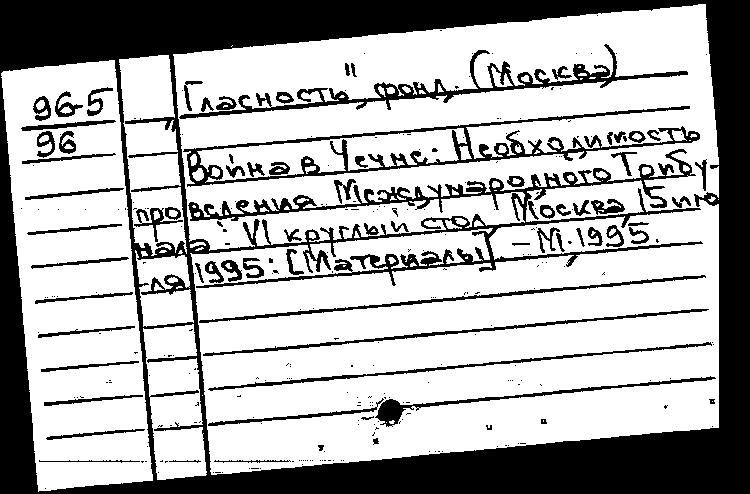 96-5
96
"Гласность", фонд. (Москва)
Война в Чечне: Необходимость
проведения Международного Трибу-
нала: VI круглый стол Москва, 15 ию-
ля 1995: [Материалы]. - М., 1995.